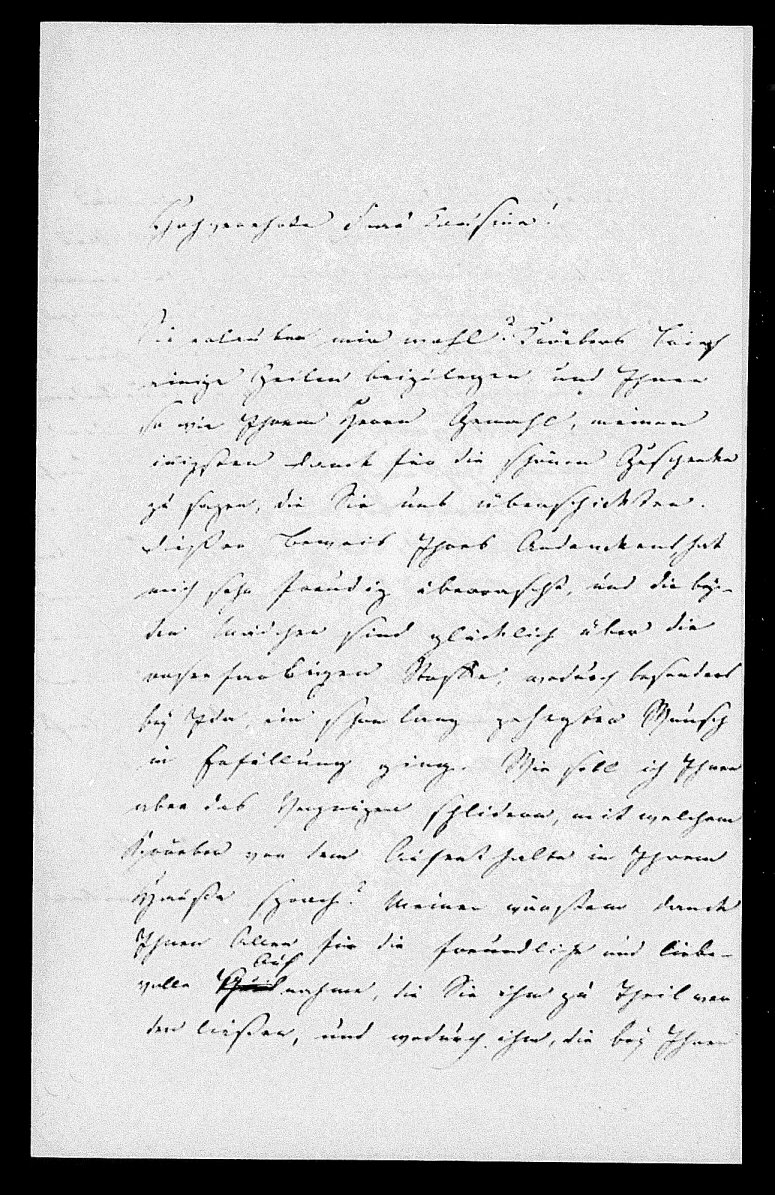 Hochverehrte Frau Cousine!
Sie erlauben mir wohl? Kröbers Brief
einige Zeilen beizulegen, und Ihnen
so wie Ihrem Herrn Gemahl, meinen
innigsten Dank für die schönen
zu sagen, die Sie uns überschickten.
Dießer Beweis Ihres Andenckens, hat
mich sehr freudig überrascht, und die bey-
den Mädchen sind glücklich über die
rosenfarbigen Stoffe, wodurch besonders
bey Ida, ein schon lang gehegter Wunsch
in Erfüllung ging. Wie soll ich Ihnen
aber das Vergnügen schildern, mit welchem
von dem Aufenthalte in Ihrem
Hauße sprach? Meinen Danck
Ihnen Allen für die freundliche und liebe-
volle Aufnahme, die Sie ihm zu Theil wer
den ließen, und wodurch ihm, die bey Ihnen